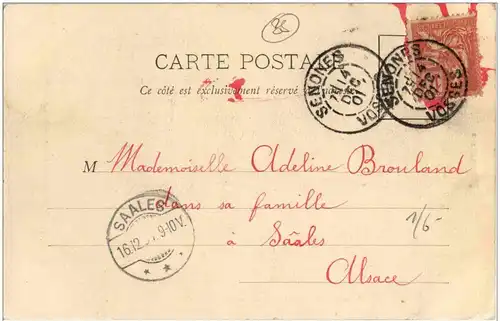 88
CARTE POSTALE
SENONES VOSGES
14 DEC 01
SENONES VOSGES
14 DEC 01
Ce côté est exclusivement réservé
M Mademoiselle Adeline Brouland
dans sa famille
à Saâles
Alsace
1/6-
SAALES
16.12. 9-10V.